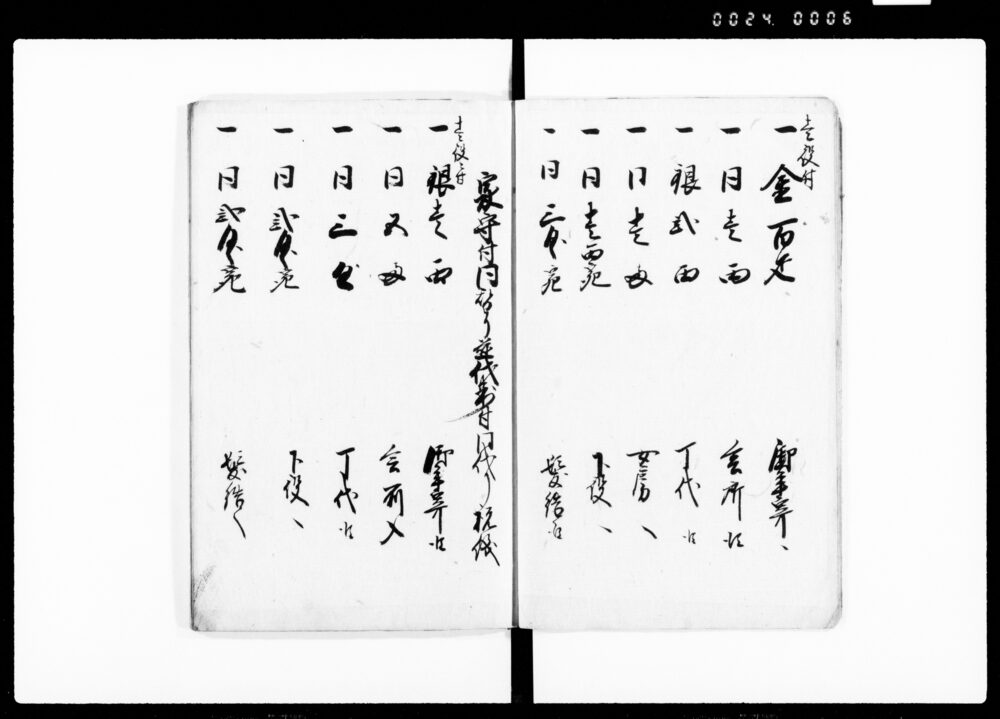 0024. 0006
壱役付
一 金百疋 御年寄へ
一 同壱両 会所へ
一 銀弐両 丁代へ
一 同壱匁 女房へ
一 同壱両宛 下役へ
一 同三分宛 髪結へ
家守付同断り并代判付同代り祝儀
壱役ニ付
一 銀壱両 御年寄へ
一 同五匁 会所入
一 同三匁 丁代へ
一 同弐分宛 下役へ
一 同弐分宛 髪結へ